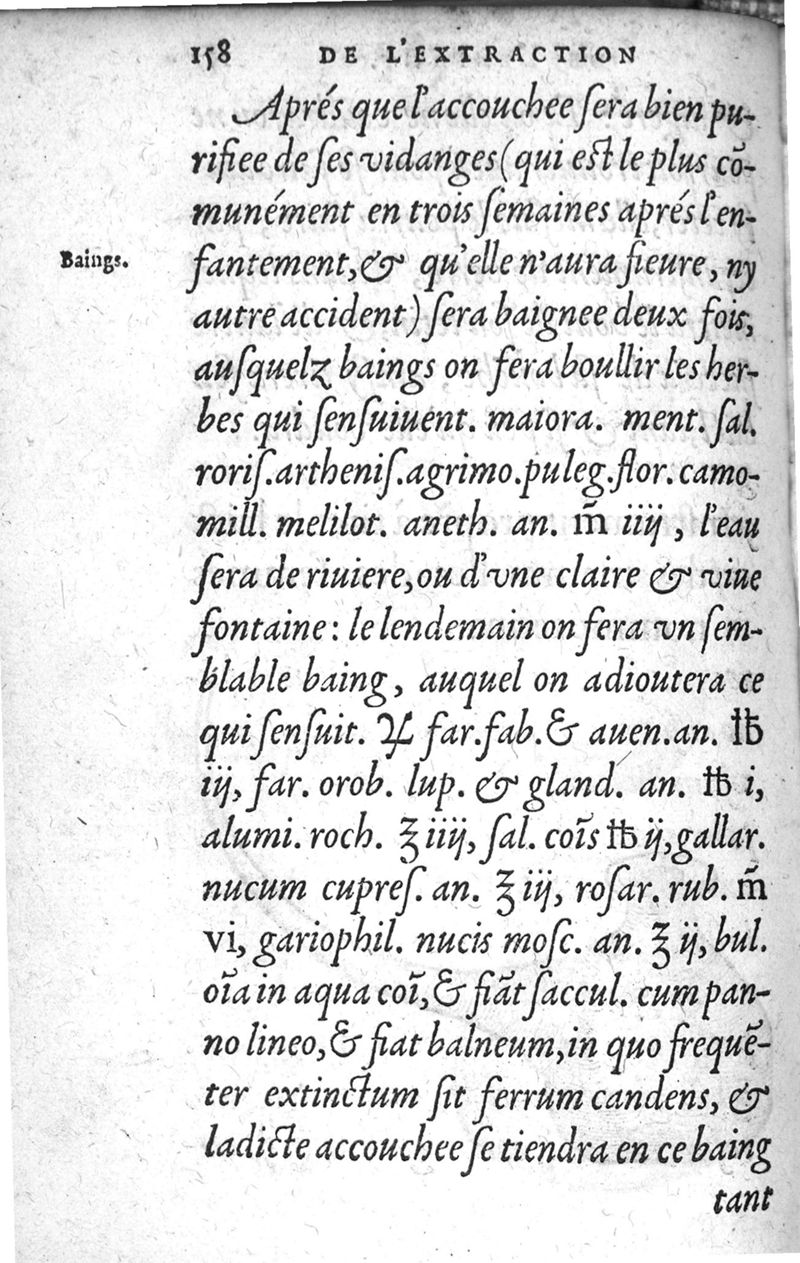 158 DE L'EXTRACTION
Aprés que l'accouchee ſera bien pu-
rifiee de ſes vidanges (qui eſt le plus cō-
munément en trois ſemaines aprés l'en-
Baings.
fantement, & qu'elle n'aura fieure, ny
autre accident) ſera baignee deux fois,
auſquelz baings on fera boullir les her-
bes qui ſenſuiuent. maiora. ment. ſal.
roriſ. artheniſ. agrimo. puleg. flor. camo-
mill. melilot. aneth. an. m̃ iiij, l'eau
ſera de riuiere, ou d'vne claire & viue
fontaine: le lendemain on fera vn ſem-
blable baing, auquel on adioutera ce
qui ſenſuit. ♃ far. fab. & auen. an. ℔
iij, far. orob. lup. & gland. an. ℔ i,
alumi. roch. ℥ iiij, ſal. coĩs ℔ ij, gallar.
nucum cupreſ. an. ℥ iij, roſar. rub. m̃
vi, gariophil. nucis moſc. an. ʒ ij, bul.
oĩa in aqua coĩ, & fiãt ſaccul. cum pan-
no lineo, & fiat balneum, in quo frequẽ-
ter extinctum ſit ferrum candens, &
ladicte accouchee ſe tiendra en ce baing
tant